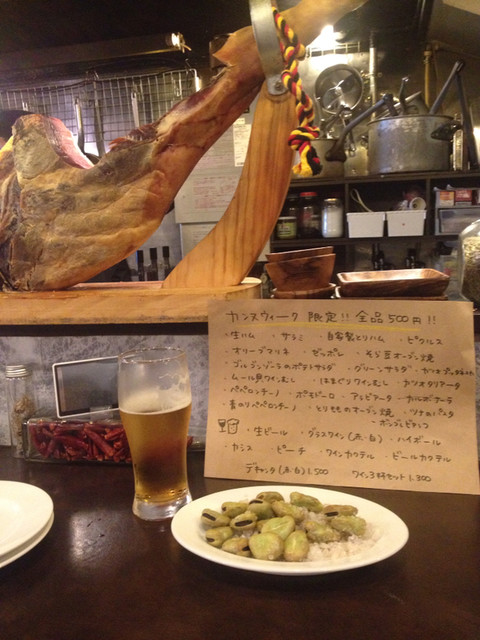 カンヌウィーク 限定!! 全品500円!!
・生ハム ・サラミ ・自家製とりハム ・ピクルス
・オリーブマリネ ・ゼッポレ ・そら豆オーブン焼
・ゴルゴンゾーラのポテトサラダ ・グリーンサラダ
・ムール貝ワインむし ・はまぐりワインむし ・カツオタリアータ
・ペペロンチーノ ・ポモドーロ ・アラビアータ ・カルボナーラ
・青のりペペロンチーノ ・とりもものオーブン焼 ・ツナのパスタ
・ボンゴレビアンコ
・生ビール ・グラスワイン(赤・白) ・ハイボール
・カシス ・ピーチ ・ワインカクテル ・ビールカクテル
デキャンタ(赤・白) 1,500 ワイン3杯セット 1,300